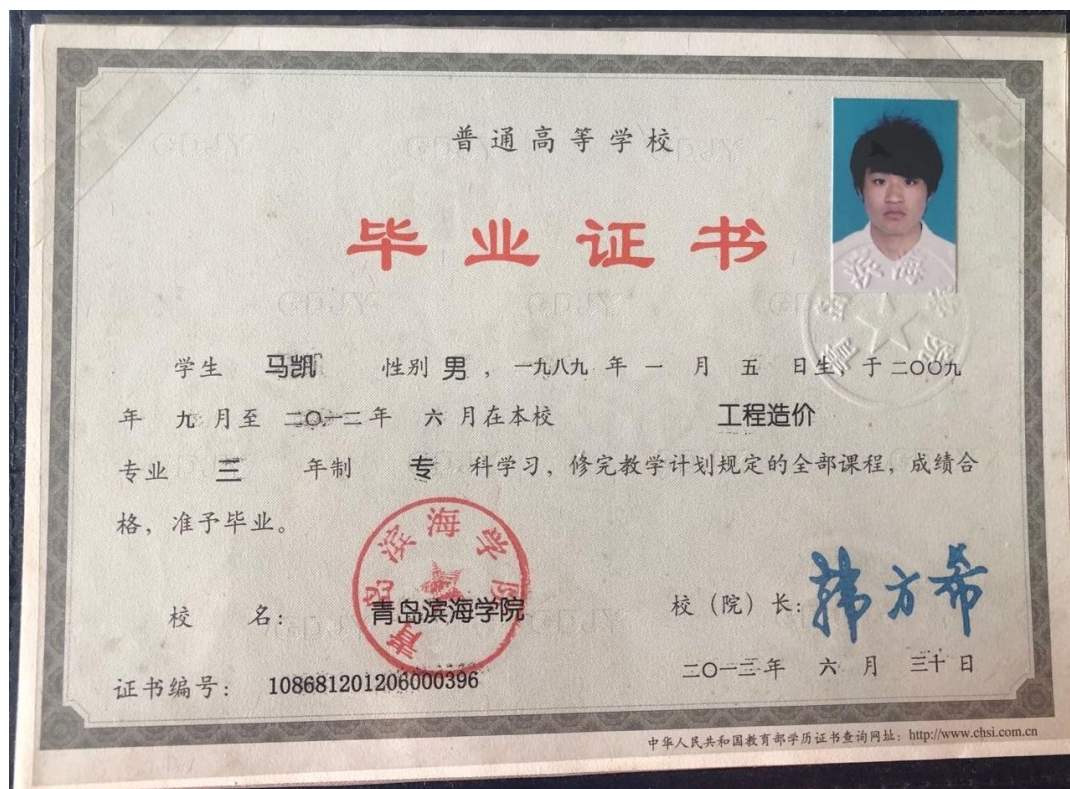 普通高等学校
毕业证书
学生 马凯 性别 男 ，一九八九 年 一 月 五 日生，于 二〇〇九
年 九 月至 二〇一二 年 六 月在本校 工程造价
专业 三 年制 专 科学习，修完教学计划规定的全部课程，成绩合
格，准予毕业。
青岛滨海学院
校 名： 青岛滨海学院
校（院）长： 韩方希
二〇一二年 六 月 三十 日
证书编号： 108681201206000396
中华人民共和国教育部学历证书查询网址：http://www.chsi.com.cn